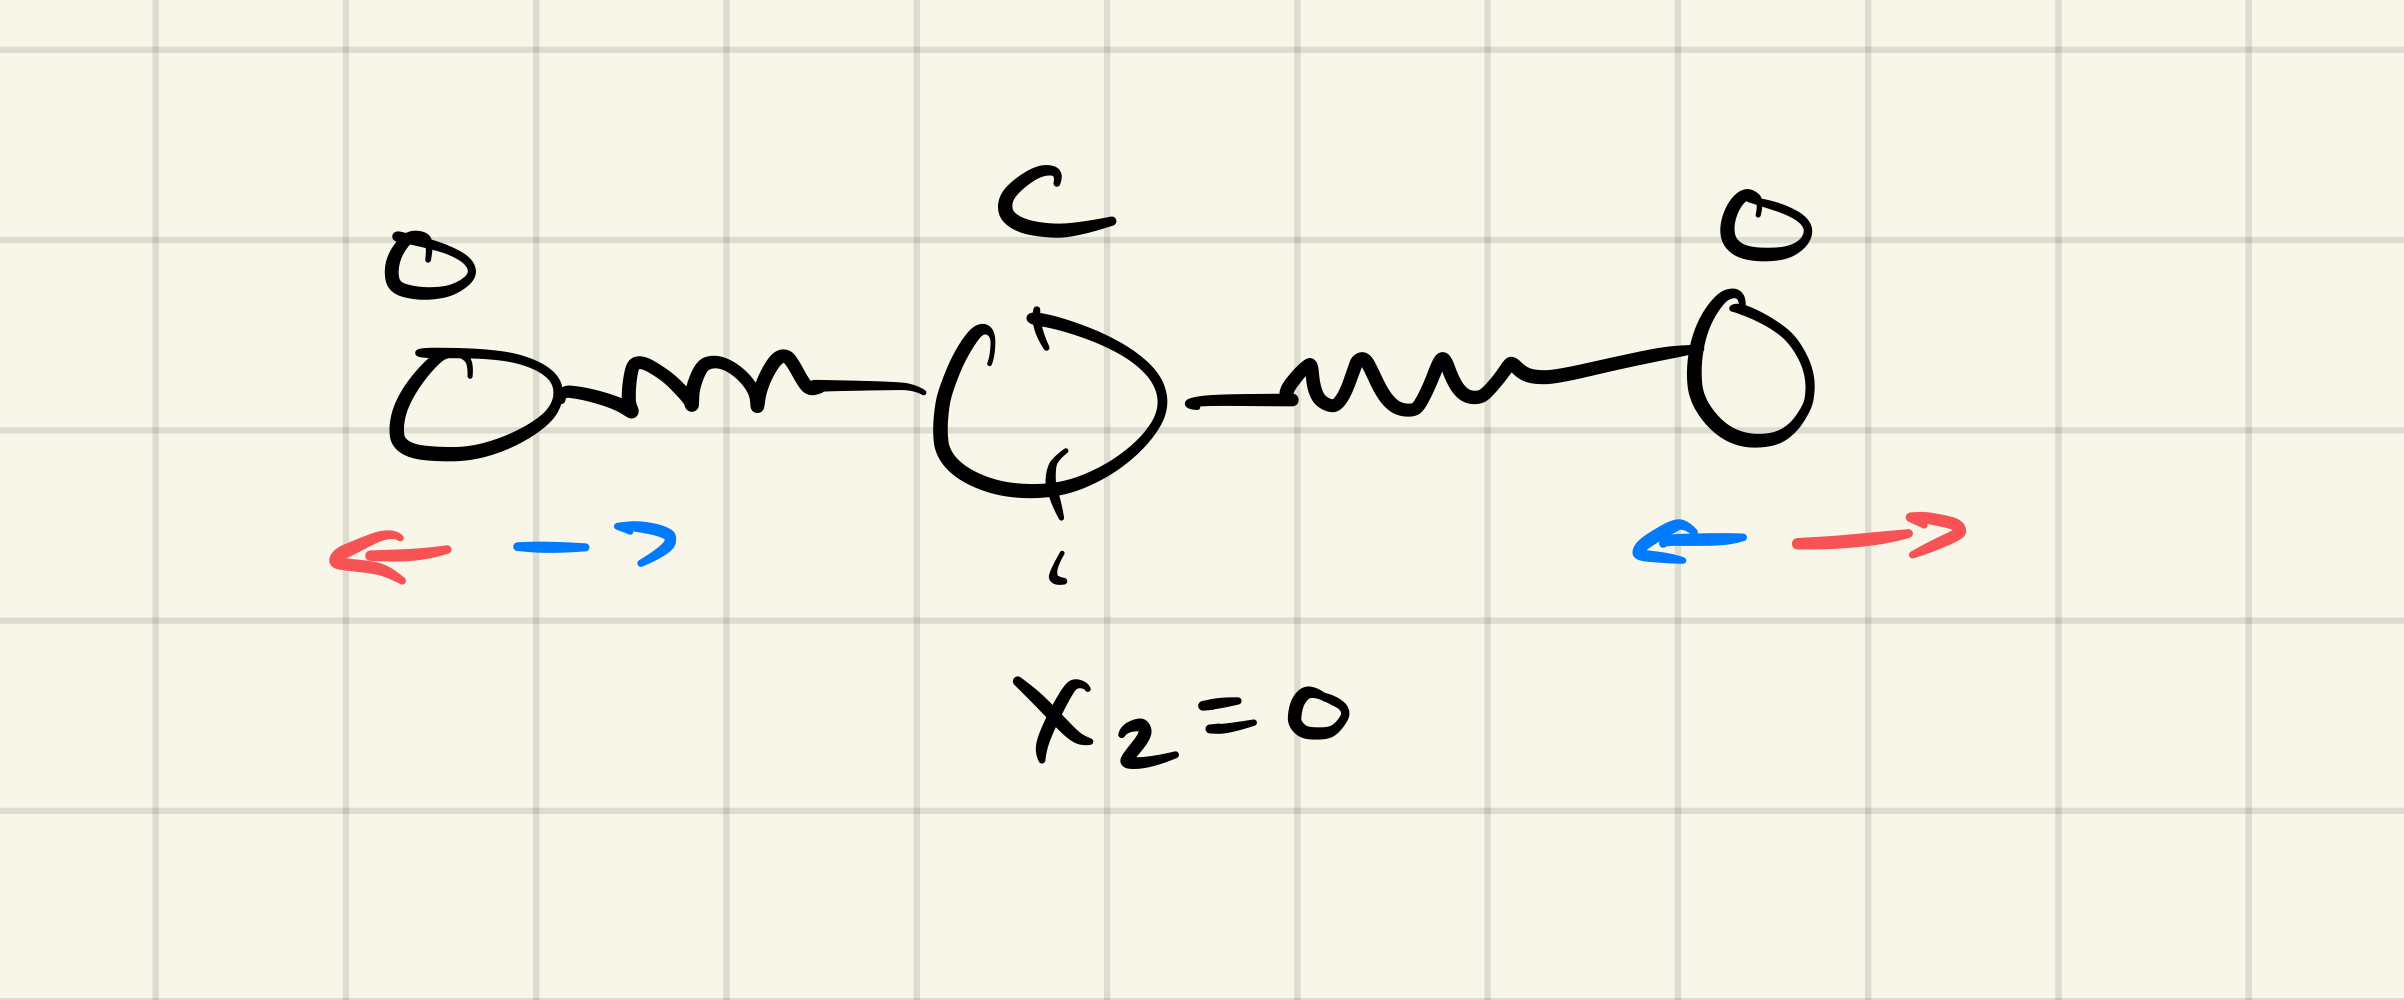 O C O
x₂ = 0